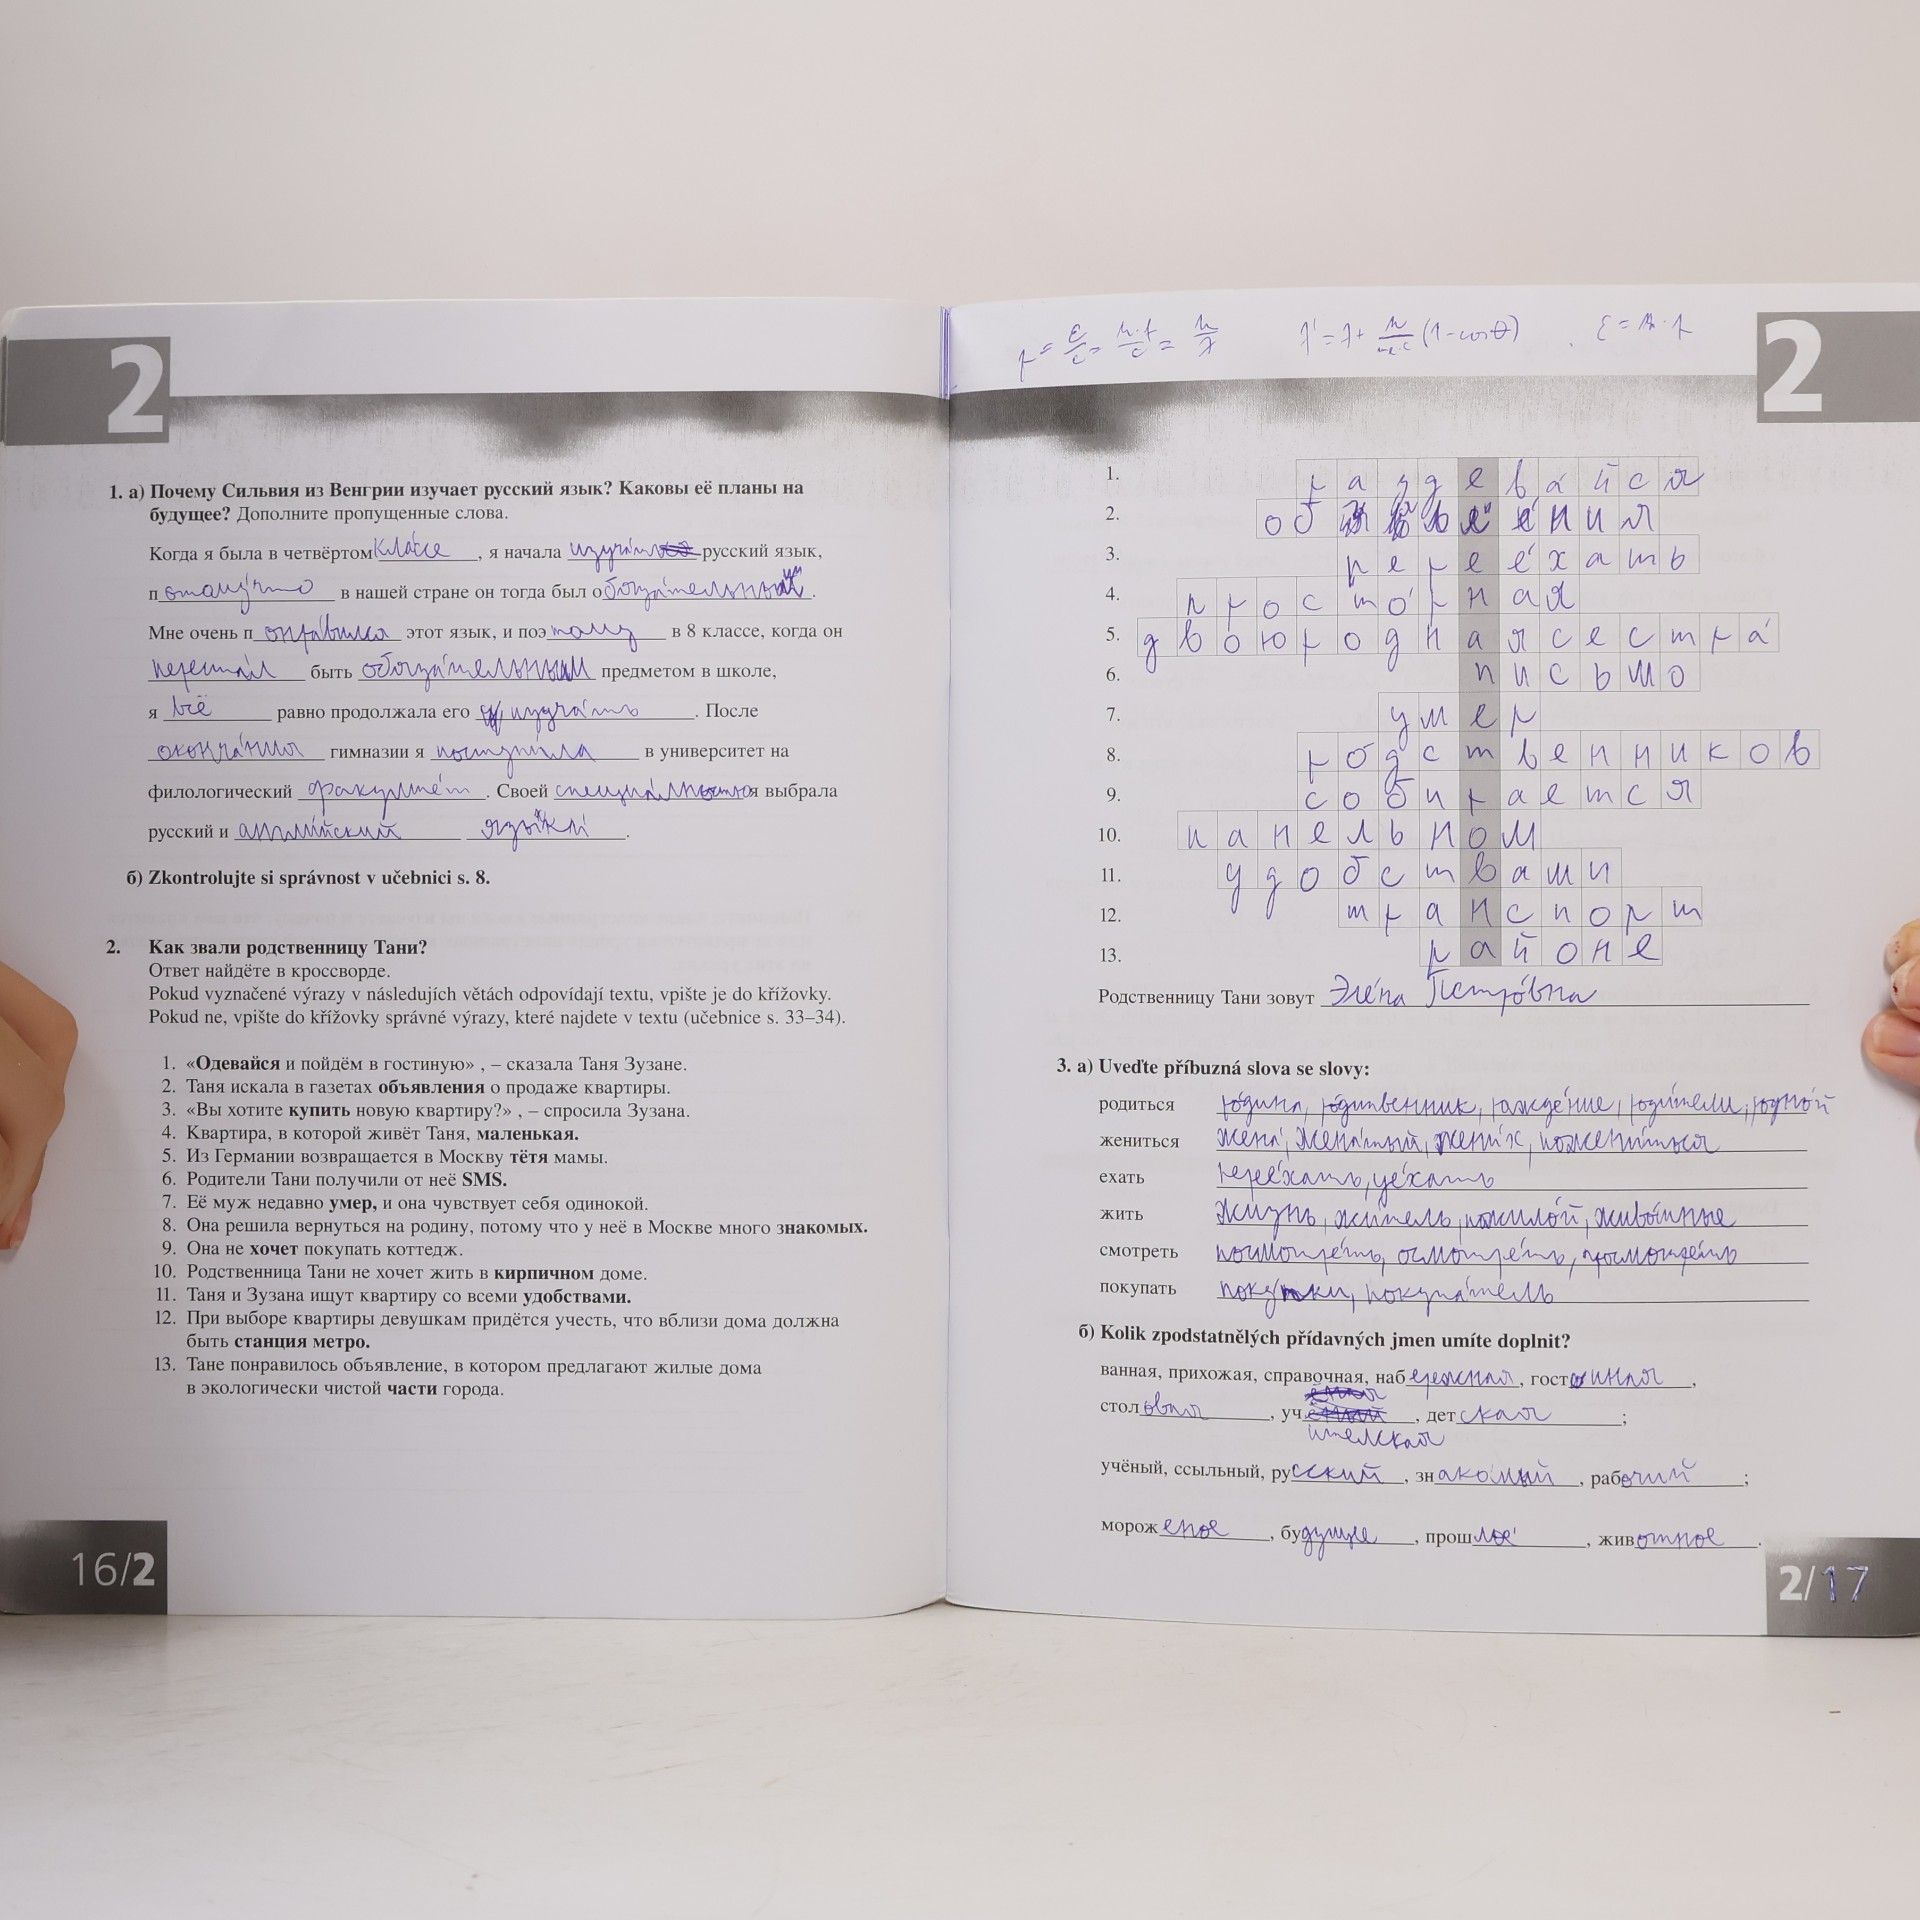 2
1. а) Почему Сильвия из Венгрии изучает русский язык? Каковы её планы на
будущее? Дополните пропущенные слова.
Когда я была в четвёртом классе, я начала изучать русский язык,
потому́что в нашей стране он тогда был обяза́тельным.
Мне очень понра́вился этот язык, и поэтому в 8 классе, когда он
переста́л быть обяза́тельным предметом в школе,
я всё равно продолжала его изуча́ть. После
оконча́ния гимназии я поступи́ла в университет на
филологический факульте́т. Своей специа́льностью я выбрала
русский и англи́йский языки́.
б) Zkontrolujte si správnost v učebnici s. 8.
2. Как звали родственницу Тани?
Ответ найдёте в кроссворде.
Pokud vyznačené výrazy v následujích větách odpovídají textu, vpište je do křížovky.
Pokud ne, vpište do křížovky správné výrazy, které najdete v textu (učebnice s. 33–34).
1. «Одевайся и пойдём в гостиную» , – сказала Таня Зузане.
2. Таня искала в газетах объявления о продаже квартиры.
3. «Вы хотите купить новую квартиру?» , – спросила Зузана.
4. Квартира, в которой живёт Таня, маленькая.
5. Из Германии возвращается в Москву тётя мамы.
6. Родители Тани получили от неё SMS.
7. Её муж недавно умер, и она чувствует себя одинокой.
8. Она решила вернуться на родину, потому что у неё в Москве много знакомых.
9. Она не хочет покупать коттедж.
10. Родственница Тани не хочет жить в кирпичном доме.
11. Таня и Зузана ищут квартиру со всеми удобствами.
12. При выборе квартиры девушкам придётся учесть, что вблизи дома должна
быть станция метро.
13. Тане понравилось объявление, в котором предлагают жилые дома
в экологически чистой части города.
16/2
p = ε/c = h·f/c = h/λ λ' = λ + h/mₑc (1-cosθ) ε = h·f
2
1. раздева́йся
2. объявле́ния
3. перее́хать
4. просто́рная
5. двоюроднаясестра́
6. письмо
7. умер
8. родственников
9. собирается
10. панельном
11. удобствами
12. транспорт
13. районе
Родственницу Тани зовут Эле́на Петро́вна
3. а) Uveďte příbuzná slova se slovy:
родиться ро́дина, ро́дственник, ражде́ние, роди́тели, родно́й
жениться жена́, жена́тый, жени́х, пожени́ться
ехать перее́хать, уе́хать
жить жизнь, жи́тель, пожило́й, живо́тные
смотреть посмотре́ть, осмотре́ть, просмотре́ть
покупать поку́пки, покупа́тель
б) Kolik zpodstatnělých přídavných jmen umíte doplnit?
ванная, прихожая, справочная, набережная, гостиная,
столовая, учителская, детская;
учёный, ссыльный, русский, знако́мый, рабочий;
мороженое, будущее, прошлое́, животное.
2/17